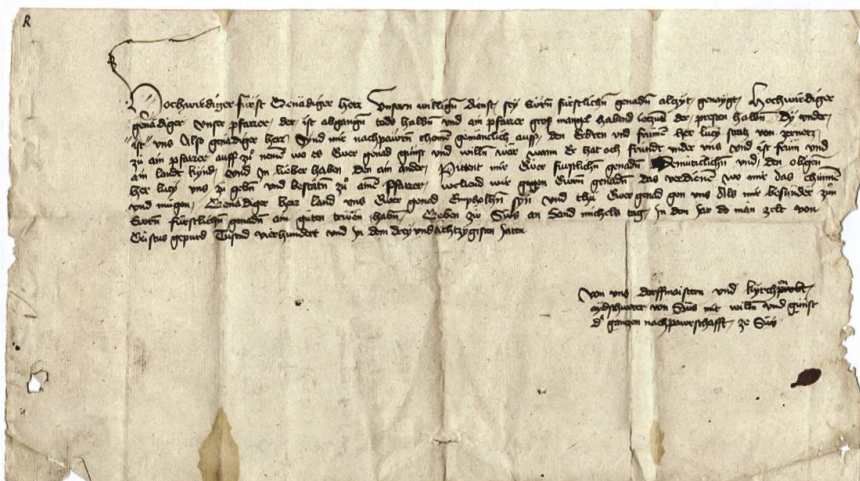 R
Hochwirdiger fürst Genädiger herr Unsern willigen dienst sey Eweren fürstlichn genadn alczyt genaygt Hochwirdiger
genädiger Unser pfarrer der ist abgangn todß halbn und ain pfarrer gros mangel habend der presten halbn Dy under
ist uns Also genädiger herr Synd mir nachpauren gemainclich auff den Erbern und frumen her lucy von zernecz
zu ain pfarrer auff zu nemen wo es Ewer genad gunst und willn wer wann Er hat och fründt under uns und ist frum und
ain landt kynd Und In lieber haben den ain ander Pittent mir Ewer fürstlichn genadn diemüticlichn und den obgen
her lucy uns zu gebn und bestätn zu aim pfarrer wellend wir gegen Ewern genadn das verdienen wo mir das chünnen
und mügen Genädiger herr land uns Ewer genad Empholhn syn und thu Ewer genad gen uns Als mir besunder zun
Ewern fürstlichn genadn ain guten trüwen habn Geben zu Süs an Sand michels tag In dem Jar do man zelt von
Cristus gepurd Tusend vierhundert und In dem drey und Achtzygisten Jaren
Von uns dorffmaistern und kyrchpröbst
aydschwerer von Süs mit willn und gunst
der ganczen nachpawrschafft ze Süs